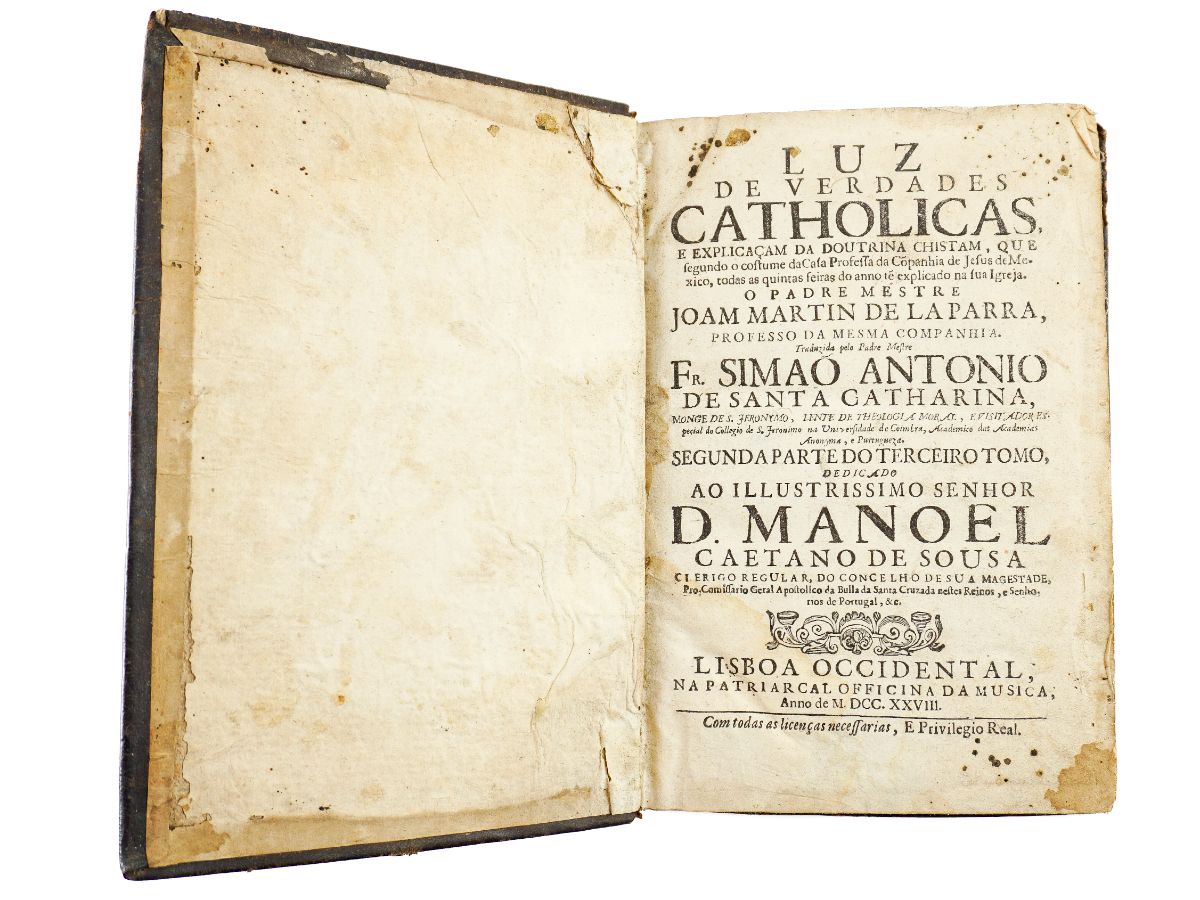 LUZ
DE VERDADES
CATHOLICAS,
E EXPLICAÇAM DA DOUTRINA CHISTAM, QUE
ſegundo o coſtume da Caſa Profeſſa da Cõpanhia de Jeſus de Me-
xico, todas as quintas feiras do anno tẽ explicado na ſua Igreja.
O PADRE MESTRE
JOAM MARTIN DE LAPARRA,
PROFESSO DA MESMA COMPANHIA.
Traduzida pelo Padre Meſtre
FR. SIMAÕ ANTONIO
DE SANTA CATHARINA,
MONGE DE S. JERONYMO, LENTE DE THEOLOGIA MORAL, E VISITADOR ES-
pecial do Collegio de S. Jeronimo na Univerſidade de Coimbra, Academico das Academias
Anonyma, e Portugueza.
SEGUNDA PARTE DO TERCEIRO TOMO,
DEDICADO
AO ILLUSTRISSIMO SENHOR
D. MANOEL
CAETANO DE SOUSA
CLERIGO REGULAR, DO CONCELHO DE SUA MAGESTADE,
Pro-Comiſſario Geral Apoſtolico da Bulla da Santa Cruzada neſtes Reinos, e Senho-
rios de Portugal, &c.
LISBOA OCCIDENTAL,
NA PATRIARCAL OFFICINA DA MUSICA,
Anno de M. DCC. XXVIII.
Com todas as licenças neceſſarias, E Privilegio Real.